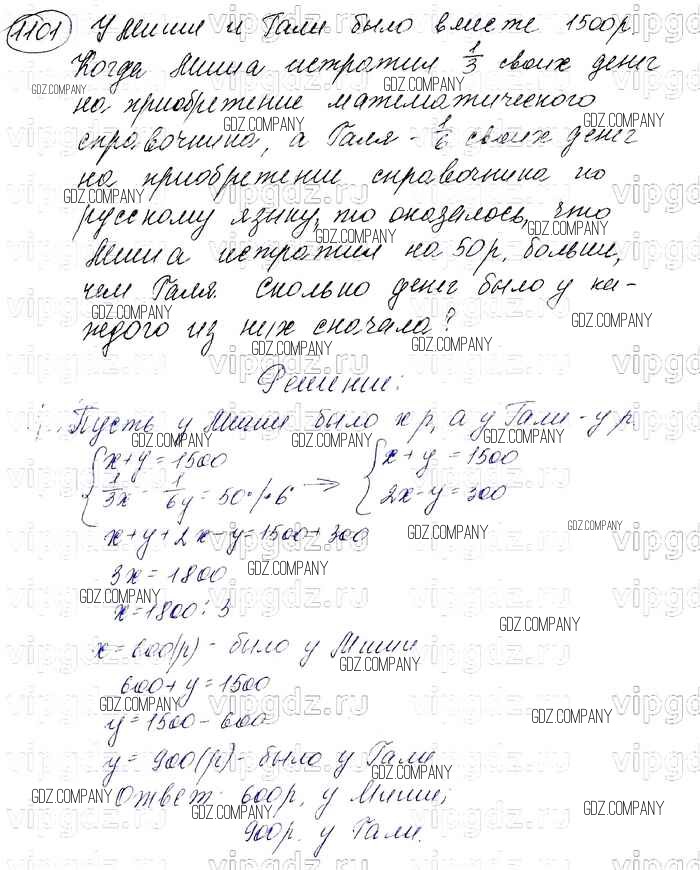 1101 У Миши и Гали было вместе 1500р.
Когда Миша истратил 1/3 своих денег
на приобретение математического
справочника, а Галя - 1/6 своих денег
на приобретение справочника по
русскому языку, то оказалось, что
Миша истратил на 50р. больше,
чем Галя. Сколько денег было у ка-
ждого из них сначала?
Решение:
Пусть у Миши было x р, а у Гали - y р.
{x+y=1500 {x+y=1500
{1/3x - 1/6y=50 /·6 → {2x-y=300
x+y+2x-y=1500+300
3x=1800
x=1800:3
x=600(р) - было у Миши
600+y=1500
y=1500-600
y=900(р) - было у Гали
Ответ: 600р. у Миши;
900р. у Гали.
GDZ.COMPANY
vipgdz.ru